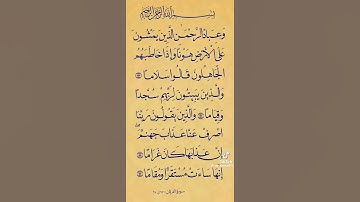 بسم الله الرحمن الرحيم
وَعِبَادُ الرَّحْمَٰنِ الَّذِينَ يَمْشُونَ
عَلَى الْأَرْضِ هَوْنًا وَإِذَا خَاطَبَهُمُ
الْجَاهِلُونَ قَالُوا سَلَامًا
وَالَّذِينَ يَبِيتُونَ لِرَبِّهِمْ سُجَّدًا
وَقِيَامًا وَالَّذِينَ يَقُولُونَ رَبَّنَا
اصْرِفْ عَنَّا عَذَابَ جَهَنَّمَ
إِنَّ عَذَابَهَا كَانَ غَرَامًا
إِنَّهَا سَاءَتْ مُسْتَقَرًّا وَمُقَامًا
سورة الفرقان